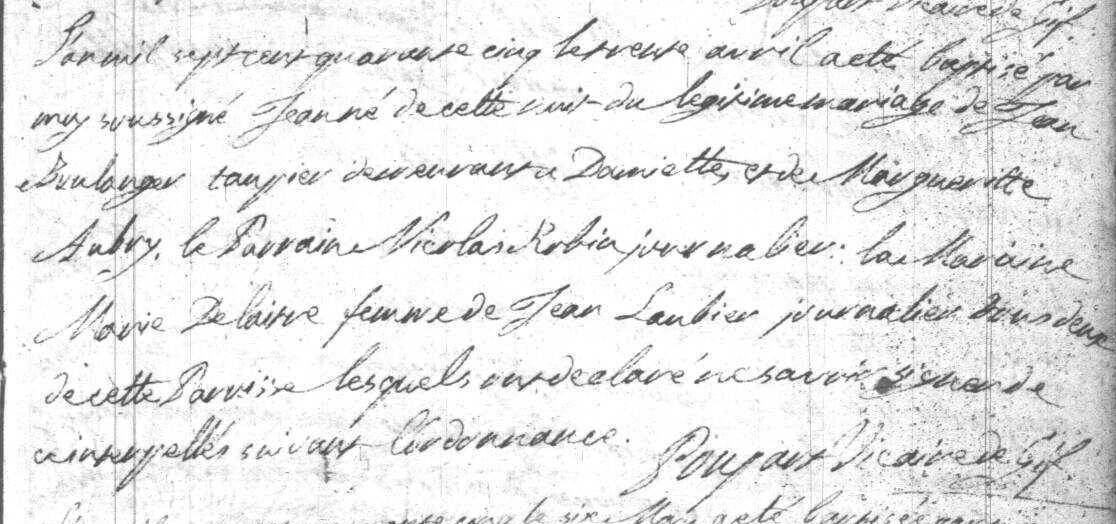 Poupart Vicaire de Gif.
L'an mil sept cent quarante cinq le trente avril a eté baptisé par
moy soussigné Jean né de cette nuit du legitime mariage de Jean
Boulanger taupier demeurant a Damiette, et de Margueritte
Aubry. le Parrain Nicolas Robin journalier: la Maraine
Marie Delaitre femme de Jean Laubier journalier tous deux
de cette Parroisse lesquels ont declaré ne savoir signer de
ce interpellés suivant l'ordonnance.
Poupart Vicaire de Gif
cinq le six May a eté baptisée par